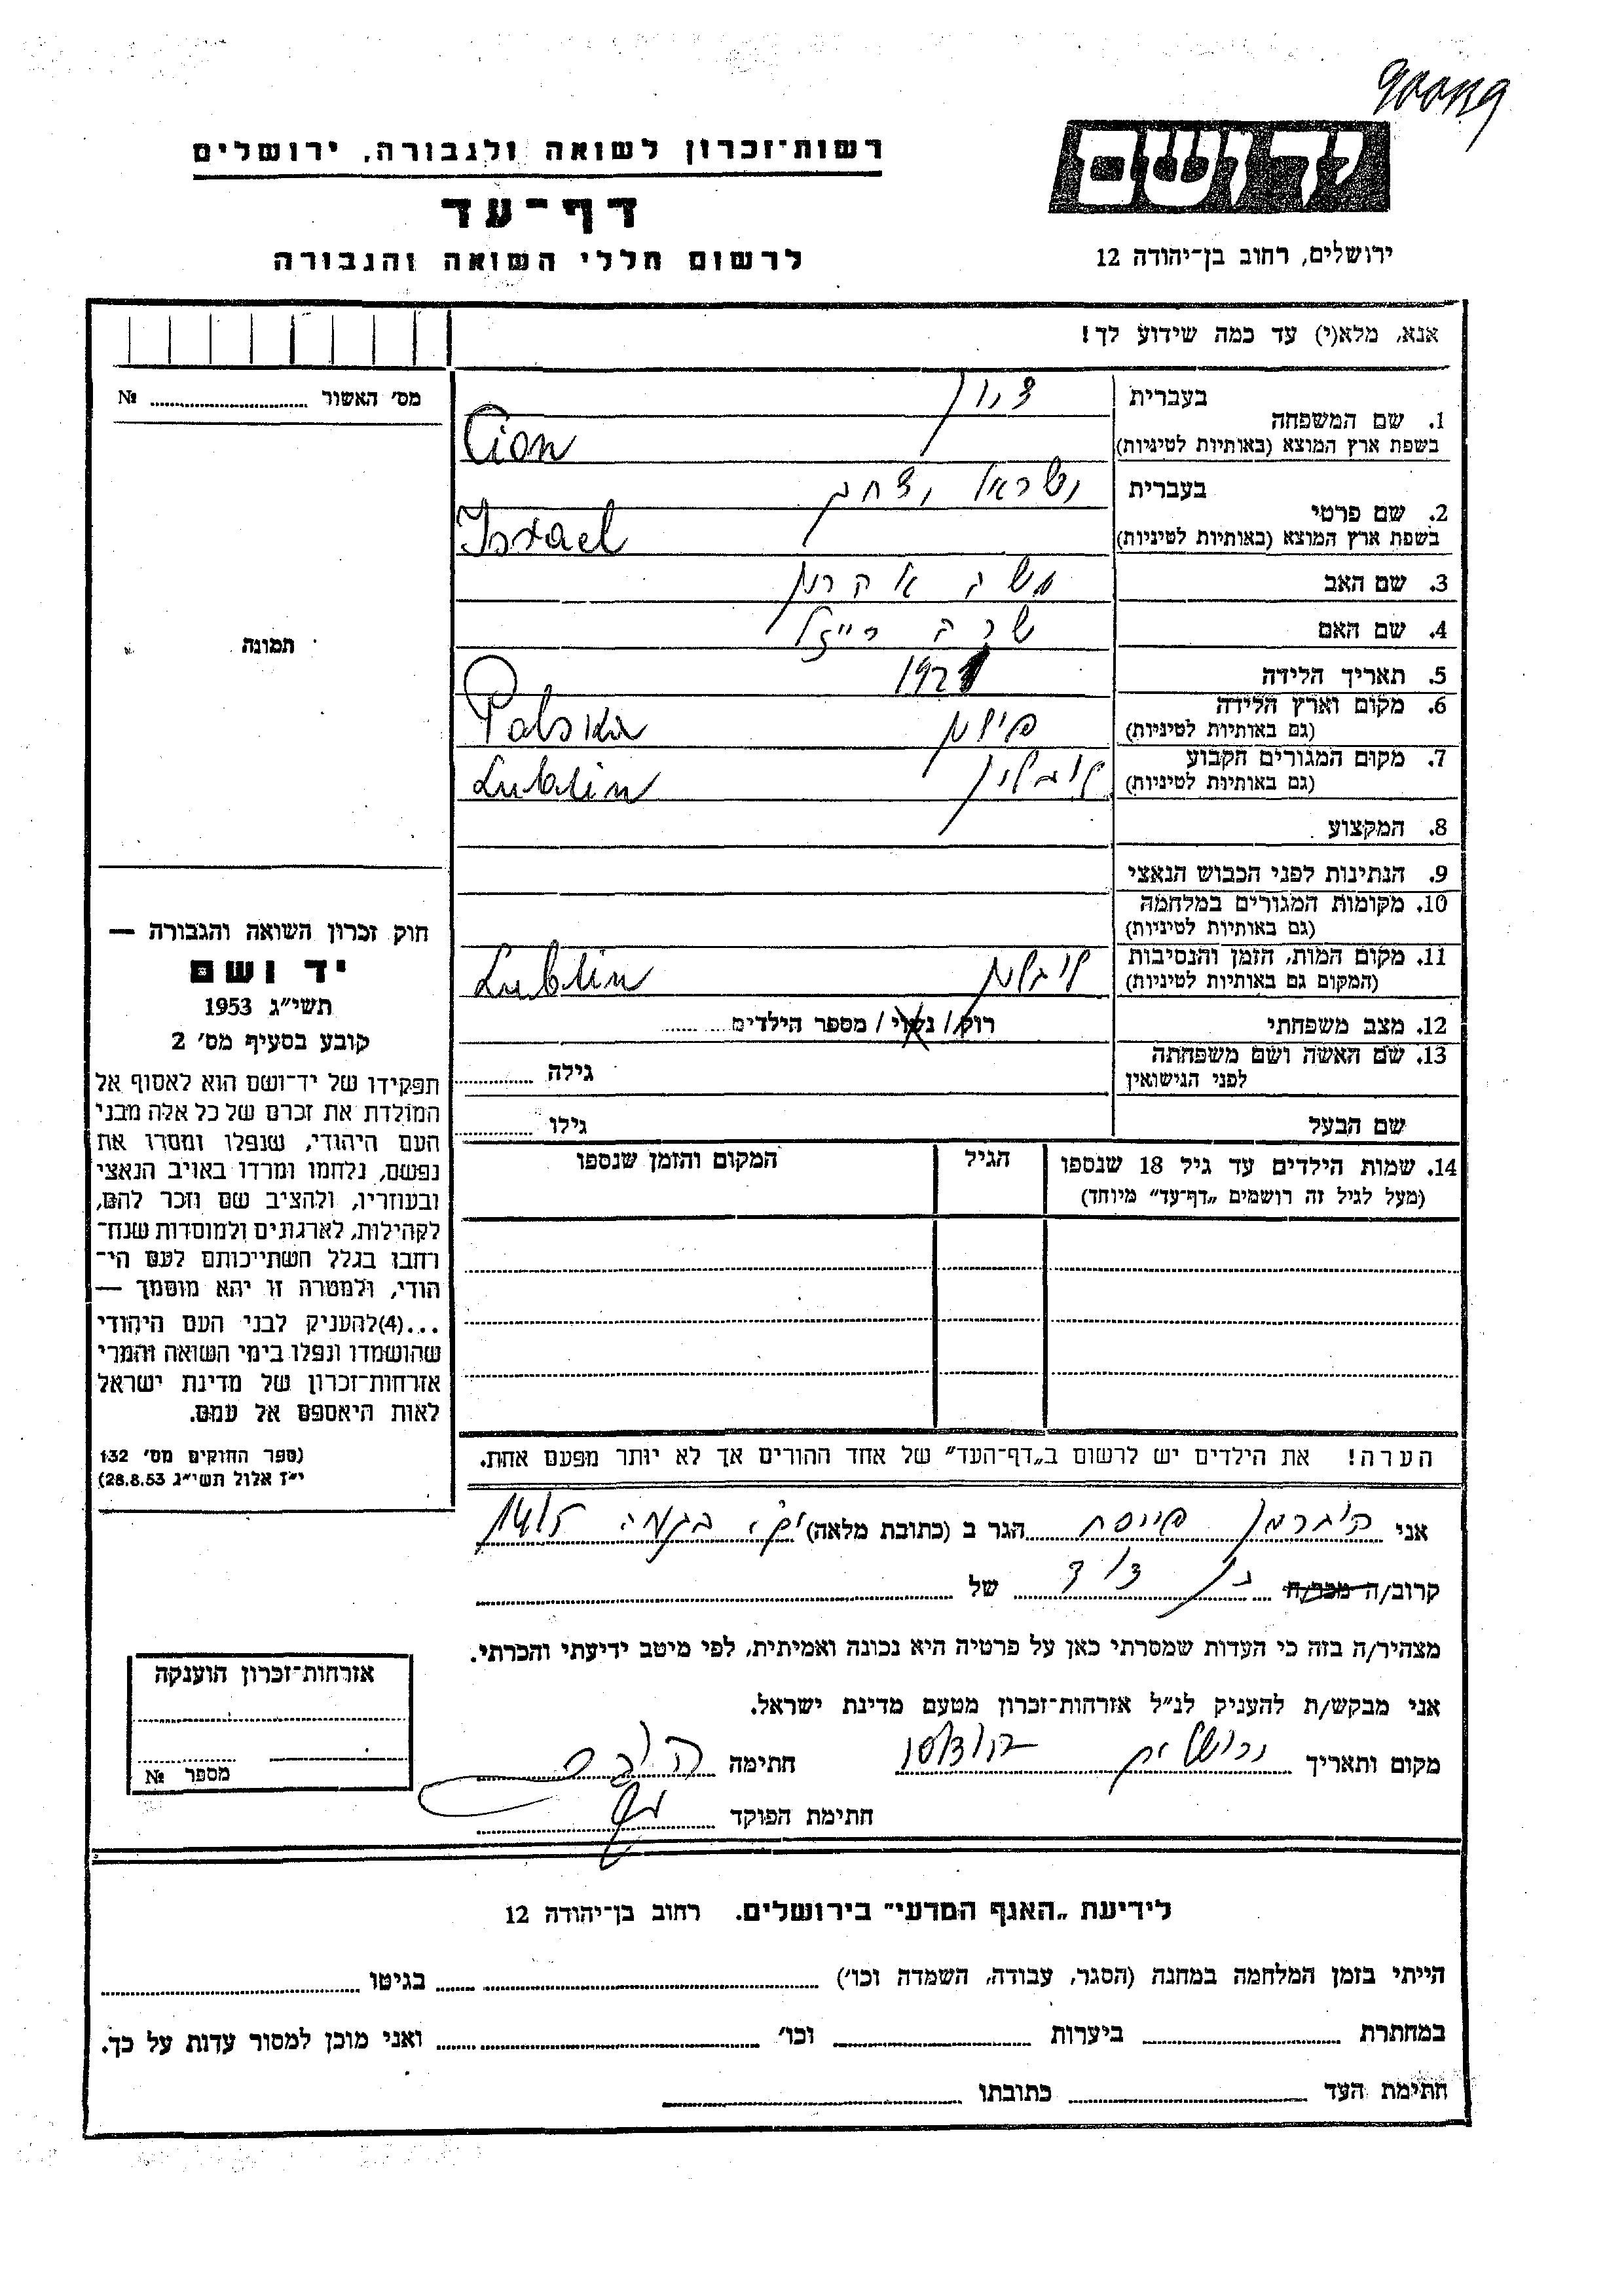 רשות־זכרון לשואה ולגבורה, ירושלים
דף־עד
לרשום חללי השואה והגבורה
יד ושם
ירושלים, רחוב בן־יהודה 12
אנא, מלא(י) עד כמה שידוע לך!
מס׳ האשור № ........
תמונה
1. שם המשפחה
בעברית ציון
בשפת ארץ המוצא (באותיות לטיניות) Cion
2. שם פרטי
בעברית ישראל יצחק
בשפת ארץ המוצא (באותיות לטיניות) Israel
3. שם האב משה אהרון
4. שם האם שרה רייזל
5. תאריך הלידה 1921
6. מקום וארץ הלידה פולין
(גם באותיות לטיניות) Polska
7. מקום המגורים הקבוע לובלין
(גם באותיות לטיניות) Lublin
8. המקצוע
9. הנתינות לפני הכבוש הנאצי
10. מקומות המגורים במלחמה
(גם באותיות לטיניות)
11. מקום המות, הזמן והנסיבות לובלין
(המקום גם באותיות לטיניות) Lublin
12. מצב משפחתי רווק / נשוי / מספר הילדים ........
13. שם האשה ושם משפחתה גילה ........
לפני הנישואין
שם הבעל גילו ........
14. שמות הילדים עד גיל 18 שנספו הגיל המקום והזמן שנספו
(מעל לגיל זה רושמים „דף־עד” מיוחד)
הערה! את הילדים יש לרשום ב„דף־העד” של אחד ההורים אך לא יותר מפעם אחת.
חוק זכרון השואה והגבורה —
יד ושם
תשי״ג 1953
קובע בסעיף מס׳ 2
תפקידו של יד־ושם הוא לאסוף אל
המולדת את זכרם של כל אלה מבני
העם היהודי, שנפלו ומסרו את
נפשם, נלחמו ומרדו באויב הנאצי
ובעוזריו, ולהציב שם וזכר להם,
לקהילות, לארגונים ולמוסדות שנח־
רחבו בגלל השתייכותם לעם הי־
הודי, ולמטרה זו יהא מוסמך —
...(4)להעניק לבני העם היהודי
שהושמדו ונפלו בימי השואה והמרי
אזרחות־זכרון של מדינת ישראל
לאות היאספם אל עמם.
(ספר החוקים מס׳ 132
י״ז אלול תשי״ג 28.8.53)
אני הוברמן פייסח הגר ב (כתובת מלאה)
קרוב/ה מכר/ה בן דוד של ........
מצהיר/ה בזה כי העדות שמסרתי כאן על פרטיה היא נכונה ואמיתית, לפי מיטב ידיעתי והכרתי.
אני מבקש/ת להעניק לנ״ל אזרחות־זכרון מטעם מדינת ישראל.
מקום ותאריך ירושלים חתימה
חתימת הפוקד
אזרחות־זכרון הוענקה
מספר №
לידיעת „האגף המדעי” בירושלים. רחוב בן־יהודה 12
הייתי בזמן המלחמה במחנה (הסגר, עבודה, השמדה וכו׳) ........ בגיטו ........
במחתרת ........ ביערות ........ וכו׳ ........ ואני מוכן למסור עדות על כך.
חתימת העד ........ כתובתו ........